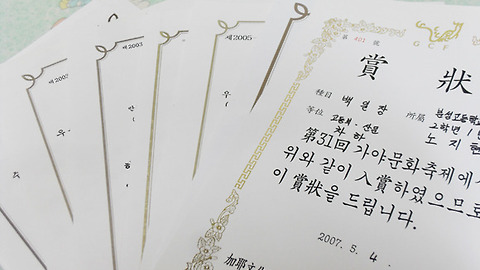 제2007
우
제2003
제2005
우
G C F
第 601 號
賞 狀
種目 백 일 장
所屬 분성고등학교
等位 고등부·산문
차하
2학년 1
노 지 현
第31回 가야문화축제에
위와 같이 入賞하였으므로
이 賞狀을 드립니다.
2007. 5. 4.
加耶文化